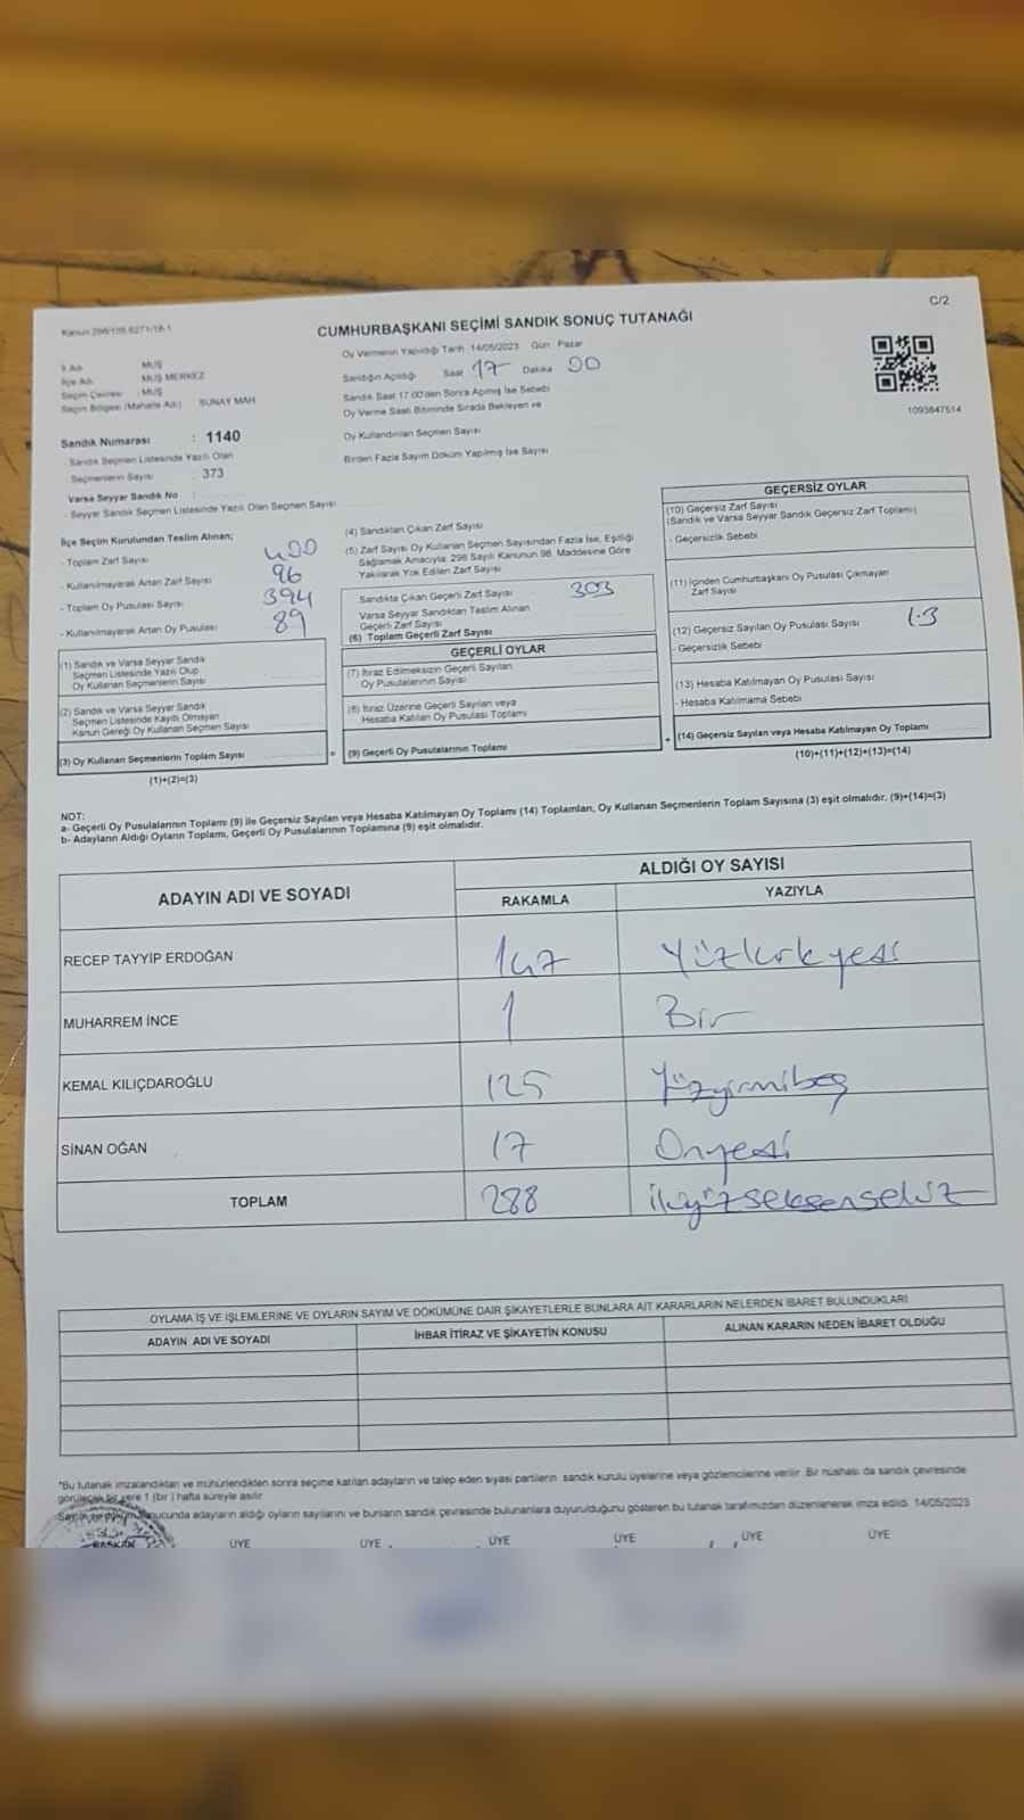 C/2
CUMHURBAŞKANI SEÇİMİ SANDIK SONUÇ TUTANAĞI
Oy Vermenin Yapıldığı Tarih 14/05/2023 Gün Pazar
İl Adı MUŞ
İlçe Adı MUŞ MERKEZ
Seçim Çevresi : MUŞ
Seçim Bölgesi (Mahalle Adı) SUNAY MAH
Sandığın Açıldığı Saat 17 Dakika 00
Sandık Saat 17.00'den Sonra Açılmış İse Sebebi
Oy Verme Saati Bitiminde Sırada Bekleyen ve
Oy Kullandırılan Seçmen Sayısı
Birden Fazla Sayım Döküm Yapılmış İse Sayısı
1093847514
Sandık Numarası : 1140
Sandık Seçmen Listesinde Yazılı Olan
Seçmenlerin Sayısı 373
Varsa Seyyar Sandık No
- Seyyar Sandık Seçmen Listesinde Yazılı Olan Seçmen Sayısı
İlçe Seçim Kurulundan Teslim Alınan;
- Toplam Zarf Sayısı 400
- Kullanılmayarak Artan Zarf Sayısı 96
- Toplam Oy Pusulası Sayısı 394
- Kullanılmayarak Artan Oy Pusulası 89
(1) Sandık ve Varsa Seyyar Sandık
Seçmen Listesinde Yazılı Olup
Oy Kullanan Seçmenlerin Sayısı
(2) Sandık ve Varsa Seyyar Sandık
Seçmen Listesinde Kayıtlı Olmayan
Kanun Gereği Oy Kullanan Seçmen Sayısı
(3) Oy Kullanan Seçmenlerin Toplam Sayısı
(1)+(2)=(3)
(4) Sandıktan Çıkan Zarf Sayısı
(5) Zarf Sayısı Oy Kullanan Seçmen Sayısından Fazla İse, Eşitliği
Sağlamak Amacıyla 298 Sayılı Kanunun 98. Maddesine Göre
Yakılarak Yok Edilen Zarf Sayısı
Sandıkta Çıkan Geçerli Zarf Sayısı 303
Varsa Seyyar Sandıktan Teslim Alınan
Geçerli Zarf Sayısı
(6) Toplam Geçerli Zarf Sayısı
GEÇERLİ OYLAR
(7) İtiraz Edilmeksizin Geçerli Sayılan
Oy Pusulalarının Sayısı
(8) İtiraz Üzerine Geçerli Sayılan veya
Hesaba Katılan Oy Pusulası Toplamı
= (9) Geçerli Oy Pusulalarının Toplamı
GEÇERSİZ OYLAR
(10) Geçersiz Zarf Sayısı
(Sandık ve Varsa Seyyar Sandık Geçersiz Zarf Toplamı)
- Geçersizlik Sebebi
(11) İçinden Cumhurbaşkanı Oy Pusulası Çıkmayan
Zarf Sayısı
(12) Geçersiz Sayılan Oy Pusulası Sayısı 13
- Geçersizlik Sebebi
(13) Hesaba Katılmayan Oy Pusulası Sayısı
- Hesaba Katılmama Sebebi
+ (14) Geçersiz Sayılan veya Hesaba Katılmayan Oy Toplamı
(10)+(11)+(12)+(13)=(14)
NOT:
a- Geçerli Oy Pusulalarının Toplamı (9) ile Geçersiz Sayılan veya Hesaba Katılmayan Oy Toplamı (14) Toplamları, Oy Kullanan Seçmenlerin Toplam Sayısına (3) eşit olmalıdır. (9)+(14)=(3)
b- Adayların Aldığı Oyların Toplamı, Geçerli Oy Pusulalarının Toplamına (9) eşit olmalıdır.
ADAYIN ADI VE SOYADI ALDIĞI OY SAYISI
RAKAMLA YAZIYLA
RECEP TAYYİP ERDOĞAN 147 Yüzkırkyedi
MUHARREM İNCE 1 Bir
KEMAL KILIÇDAROĞLU 125 Yüzyirmibeş
SİNAN OĞAN 17 Onyedi
TOPLAM 288 ikiyüzseksensekiz
OYLAMA İŞ VE İŞLEMLERİNE VE OYLARIN SAYIM VE DÖKÜMÜNE DAİR ŞİKAYETLERLE BUNLARA AİT KARARLARIN NELERDEN İBARET BULUNDUKLARI
ADAYIN ADI VE SOYADI İHBAR İTİRAZ VE ŞİKAYETİN KONUSU ALINAN KARARIN NEDEN İBARET OLDUĞU
*Bu tutanak imzalandıktan ve mühürlendikten sonra seçime katılan adayların ve talep eden siyasi partilerin sandık kurulu üyelerine veya gözlemcilerine verilir. Bir nüshası da sandık çevresinde
görülecek bir yere 1 (bir) hafta süreyle asılır.
sonucunda adayların aldığı oyların sayılarını ve bunların sandık çevresinde bulunanlara duyurulduğunu gösteren bu tutanak tarafımızdan düzenlenerek imza edildi. 14/05/2023
BAŞKAN ÜYE ÜYE ÜYE ÜYE ÜYE ÜYE